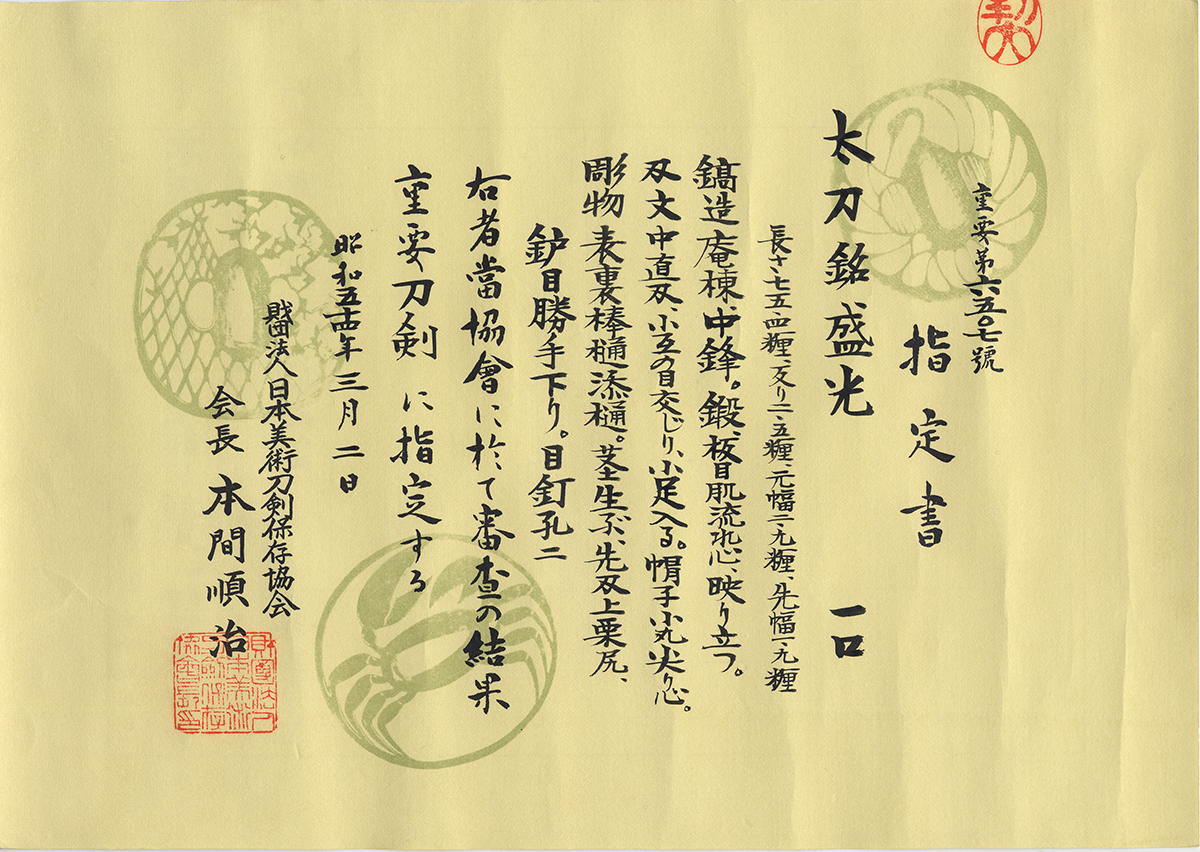 重要第六五〇七號
指定書
太刀銘盛光 一口
長サ、七五・四糎、反り二・五糎、元幅二・九糎、先幅一・九糎
鎬造庵棟、中鋒。鍛、板目肌流れ心、映り立つ。
刄文中直刄、小互の目交じり、小足入る。帽子小丸尖り心。
彫物表裏棒樋添樋。茎生ぶ、先刄上栗尻、
鈩目勝手下り。目釘孔二
右者當協會に於て審査の結果
重要刀剣に指定する
昭和五十四年三月二日
財団法人日本美術刀剣保存協会
会長本間順治